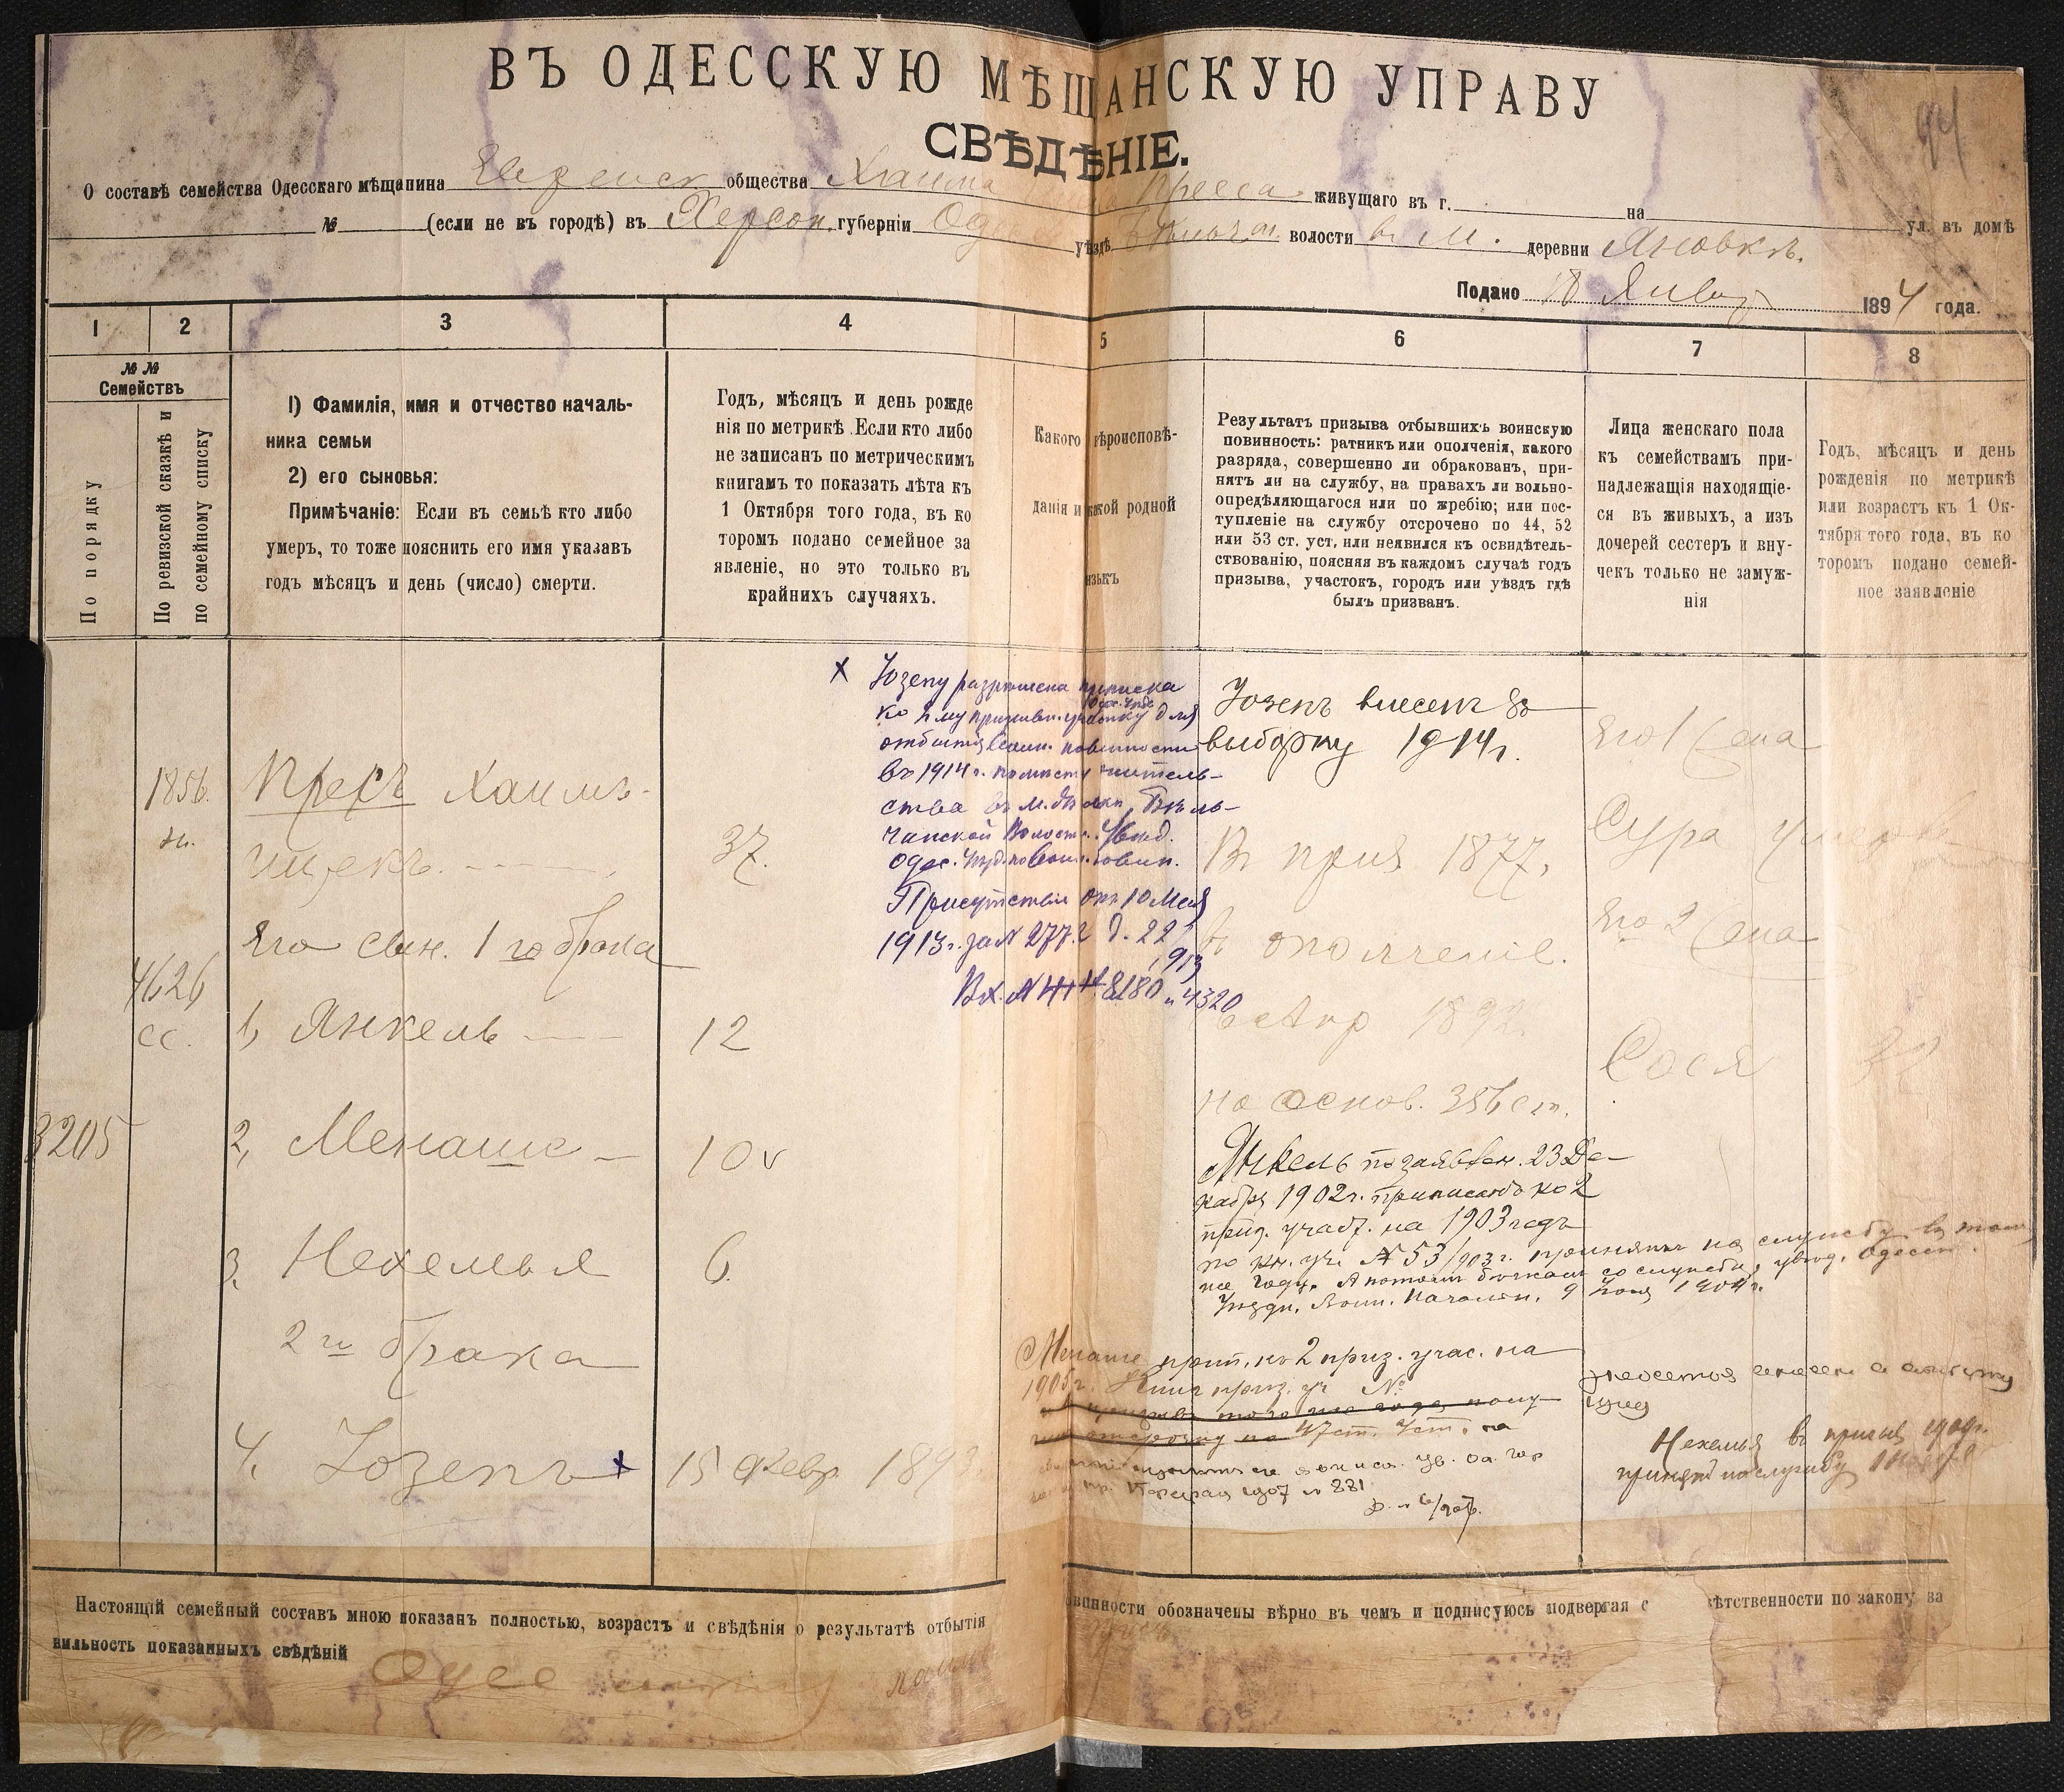 ВЪ ОДЕССКУЮ МѢЩАНСКУЮ УПРАВУ
СВѢДѢНІЕ.
94
О составѣ семейства Одесскаго мѣщанина Еврейск общества Хаима Пресса живущаго въ г. на ул. въ домѣ
№ (если не въ городѣ) въ Херсон. губерніи Оде уѣздѣ волости в м. деревни Яновкѣ.
Подано 18 Январ 1894 года.
1 2 3 4 5 6 7 8
№№ Семействъ
По порядку
По ревизской сказкѣ и по семейному списку
1) Фамилія, имя и отчество началь-
ника семьи
2) его сыновья:
Примѣчаніе: Если въ семьѣ кто либо
умеръ, то тоже пояснить его имя указавъ
годъ мѣсяцъ и день (число) смерти.
Годъ, мѣсяцъ и день рожде
нія по метрикѣ. Если кто либо
не записанъ по метрическимъ
книгамъ то показать лѣта къ
1 Октября того года, въ ко
торомъ подано семейное за
явленіе, но это только въ
крайнихъ случаяхъ.
Какого вѣроисповѣ-
данія и какой родной
языкъ
Результатъ призыва отбывшихъ воинскую
повинность: ратникъ или ополченія, какого
разряда, совершенно ли обракованъ, при-
нятъ ли на службу, на правахъ ли вольно-
опредѣляющагося или по жребію; или пос-
тупленіе на службу отсрочено по 44, 52
или 53 ст. уст, или неявился къ освидѣтель-
ствованію, поясняя въ каждомъ случаѣ годъ
призыва, участокъ, городъ или уѣздъ гдѣ
былъ призванъ.
Лица женскаго пола
къ семействамъ при-
надлежащія находящіе-
ся въ живыхъ, а изъ
дочерей сестеръ и вну-
чекъ только не замуж-
нія
Годъ, мѣсяцъ и день
рожденія по метрикѣ
или возрастъ къ 1 Ок-
тября того года, въ ко
торомъ подано семей-
ное заявленіе
3205
1856.
н.
4626
сс.
Пресъ Хаимъ-
Ицекъ
37.
Его сын. 1го брака
1, Янкель 12
2, Менаше 10
3, Нехемья 6.
2го брака
4, Іозепъ x 15 Февр 1893
x Іозепу разрѣшена приписка
ко 2 му призывн. участку Одес. Уѣзд. для
отбытія воин. повинности
въ 1914 г. по мѣсту житель-
ства въ м.
чанской Волости. Увѣд.
Одес. Уѣзд. по воин. повин.
Присутствія отъ 10 Мая
1913 г. за № 2772 д. 22
913
Вх. № 8180 и 4320
Іозепъ внесенъ въ
выборку 1914 г.
В приз 1877,
в ополченіе.
6 Апр 1892.
на основ. 356 ст.
Янкель по заявлен. 23 Де-
кабря 1902 г. приписанъ ко 2
приз. участ. на 1903 годъ
по кн. уч. № 53/903 г. принятъ на службу въ том
же году. А потомъ бѣжалъ со службы, увѣд. Одесск.
Уѣздн. Воин. Начальн. 9 1904 г.
Менаше прип. ко 2 приз. учас. на
1905 г. Книг приз. уч №
въ призывѣ того же года полу-
чилъ отсрочку по 47 ст. Уст.
1907 № 881
Его 1 Жена
Сура
Его 2 Жена
Сося 32
Нехемья въ призывѣ 1909 г.
принятъ на службу
Настоящій семейный составъ мною показанъ полностью, возрастъ и свѣдѣнія о результатѣ отбытія
овинности обозначены вѣрно въ чемъ и подписуюсь подвергая с ѣтственности по закону за
вильность показанныхъ свѣдѣній